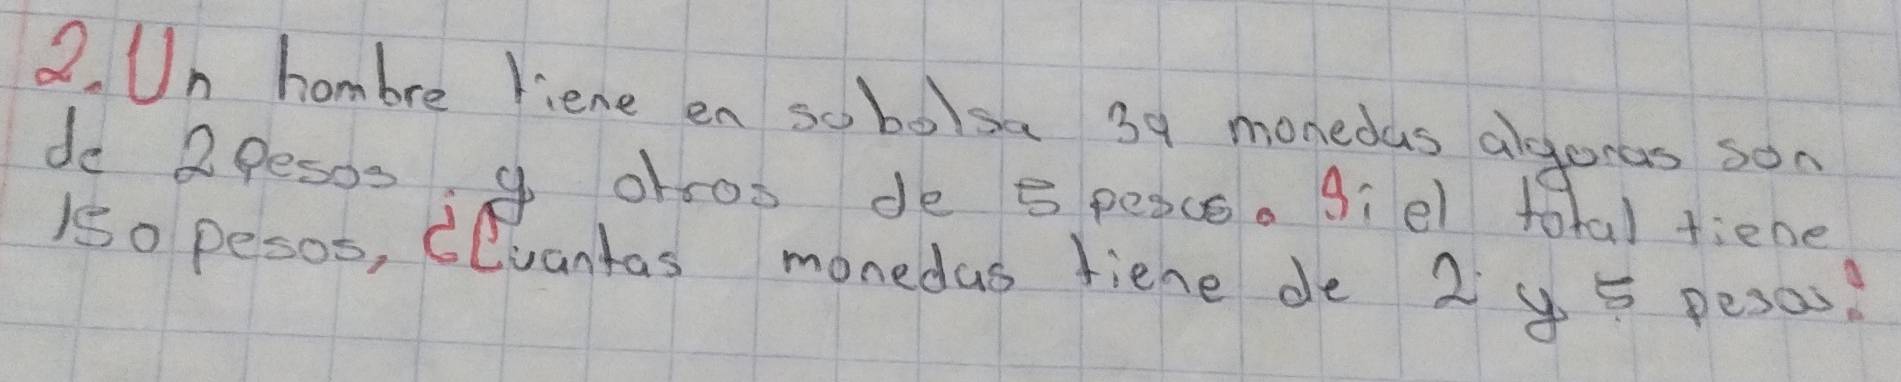 2. Un hombre tiene en su bolsa 39 monedas algunas son
de 2 pesos y otros de 5 pesos. Si el total tiene
150 pesos, ¿Cuantas monedas tiene de 2 y 5 pesos?